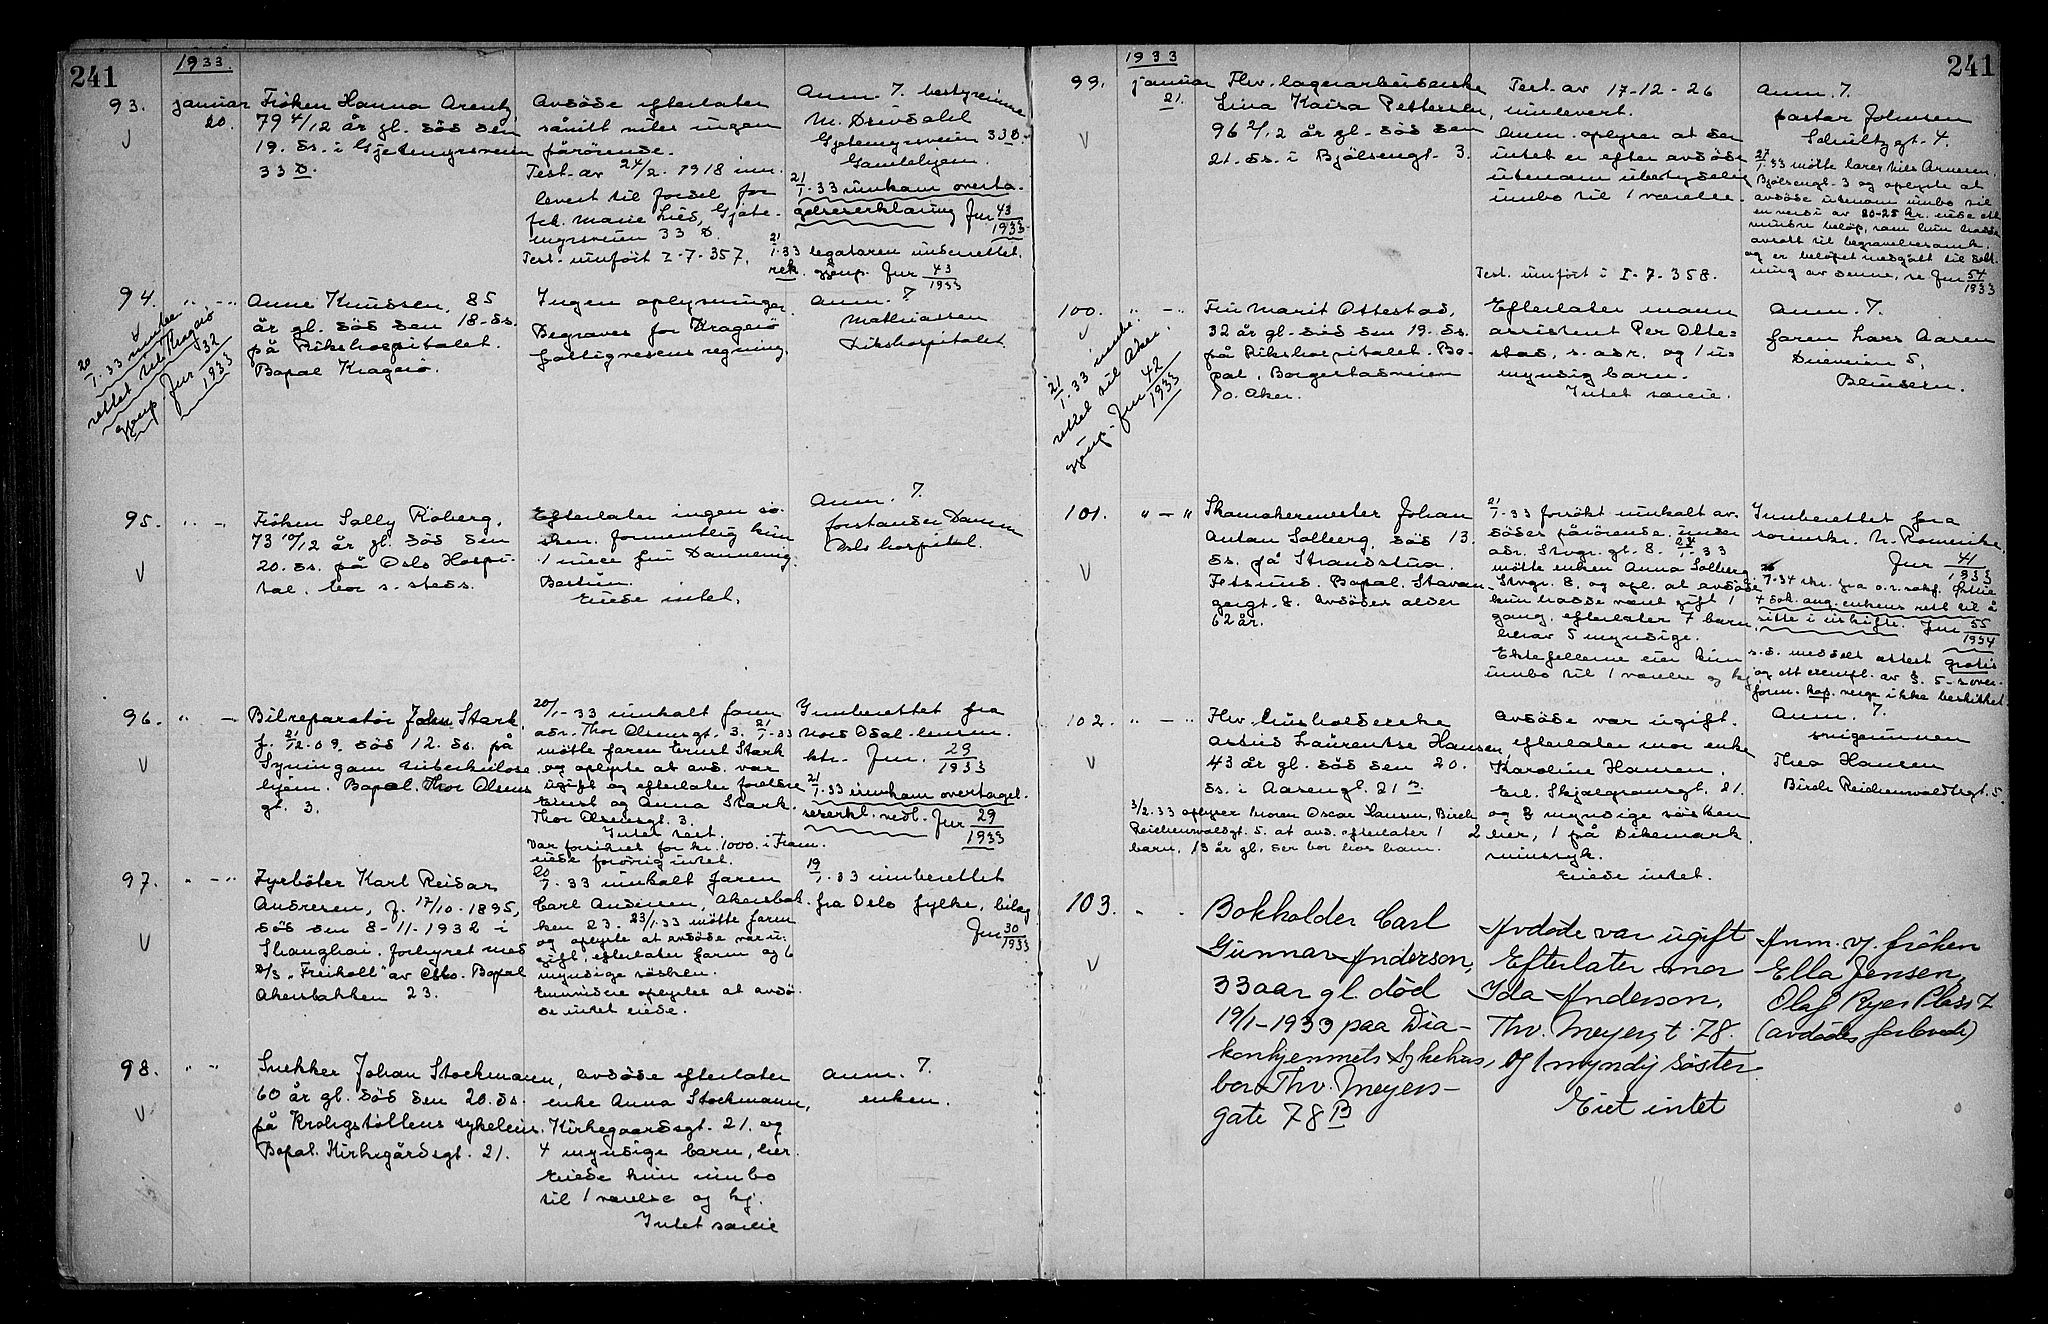 241
1933.
93.
januar
20.
Frøken Hanna Arentz
79 4/12 år gl. død den
19. ds. i Gjetemyrsveien
33 D.
Avdøde efterlater
såvitt vites ingen
pårørende.
Test. av 24/2. 1918 inn-
levert til forsel for
frk. Marie Lied, Gjete-
myrsveien 33 D.
Test. innført I-7-357.
Anm. 7. bestyrerinne
M. Drivdahl
Gjetemyrsveien 33D.
Gamlehjem.
21/1.33 innkom overta-
gelseserklæring Jnr 43/1933
21/1.33 legataren underrettet.
rek. gjenp. Jnr 43/1933
94.
20/1.33 innbe-
rettet til Kragerø
gjenp. Jnr 32/1933
Anne Knudsen, 85
år gl. død den 18. ds.
på Rikshospitalet.
Bopel Kragerø.
Ingen oplysninger
Begraves for Kragerø
fattigvesens regning.
Anm. 7.
Mathiassen
Rikshospitalet
95.
Frøken Sally Röberg,
73 10/12 år gl. død den
20. ds. på Oslo Hospi-
tal, bor s. steds.
Efterlater ingen sø-
sken, formentlig kun
1 niece fru Dannevig,
Eiede intet.
Anm. 7.
forstander Damm
Oslo hospital.
96.
Bilreparatør John Stark,
f. 21/12.09, død 12. ds. på
tuberkulose
hjem. Bopel. Thor Olsens
gt. 3.
20/1-33 innkalt faren
adr. Thor Olsensgt. 3. 21/1-33
møtte faren Ernst Stark
og oplyste at avd. var
ugift og efterlater foreldre
Ernst og Anna Stark.
Thor Olsensgt. 3.
Intet test.
Var forsikret for kr. 1000. i Fram.
eiede forøvrig intet.
Innberettet fra
Nord Odal lensm.
ktr. Jnr. 29/1933
21/1.33 innkom overtagel-
seserkl. vedl. Jnr 29/1933
97.
Fyrbøter Karl Reidar
Andresen, f. 17/10-1895,
død den 8-11-1932 i
Shanghai, forhyret med
D/S "Freihall" av Oslo. Bopel
Akersbakken 23.
20/1.33 innkalt faren
Carl Andresen, Akersbak-
ken 23. 23/1.33 møtte faren
og oplyste at avdøde var u-
gift, efterlater faren og 6
myndige søsken.
oplystes at avdø-
de intet eiede.
19/1.33 innberettet
fra Oslo fylke, bilag
Jnr 30/1933
98.
Snekker Johan Stockmann,
60 år gl. død den 20. ds.
på Krohgstøttens sykehus.
Bopel. Kirkegårdsgt. 21.
Avdøde efterlater
enke Anna Stockmann,
Kirkegaardsgt. 21. og
4 myndige barn, her.
Eiede kun innbo
til 1 værelse og kj.
Intet særeie
Anm. 7.
enken.
241
1933
99.
januar
21.
Fhv. lagerarbeiderske
Lina Kaisa Pettersen,
96 2/12 år gl. død den
21. ds. i Bjølsengt. 3.
Test. av 17-12-26
innlevert.
Anm. oplyser at der
intet er efter avdøde
utenom ubetydelig
innbo til 1 værelse.
Test. innført i I-7-358.
Anm. 7.
pastor Johnsen
Schultzgt. 4.
27/1.33 møtte lærer Nils Arnesen,
Bjølsengt. 3 og oplyste at
avdøde utenom innbo til
en verdi av 20-25 kr. eiede ett
mindre beløp, som hun hadde
avsatt til begravelsesomk.
og er beløpet medgått til dekk-
ning av denne, se Jnr 54/1933
100.
21/1.33 innbe-
rettet til Aker.
gjenp. Jnr 42/1933
Fru Marit Ottestad,
32 år gl. død den 19. ds.
på Rikshospitalet. Bo-
pel, Borgestadveien
10. Aker.
Efterlater mann
assistent Per Otte-
stad, s. adr. og 1 u-
myndig barn.
Intet særeie.
Anm. 7.
faren Lars Aaren
5,
101.
Skomakermester Johan
Anton Solberg, død 13.
ds. på Strandstua.
Fetsund. Bopel. Stavan-
gergt. 8. Avdødes alder
62 år.
21/1.33 forsøkt innkalt av-
dødes pårørende under
adr. Stvgr. gt. 8. 24/1-33
møtte enken Anna Solberg.
Stvgr. 8. og opl. at avdøde
kun hadde vært gift 1
gang, efterlater 7 barn,
herav 5 myndige.
Ektefellene eier kun
innbo til 1 værelse og kj.
Innberettet fra
sorenskr. N. Romerike.
Jnr 41/1933
7-34 skr. fra o.r.sakf.
ang. enkens rett til å
sitte i uskifte. Jnr 55/1934
s.d. meddelt attest gratis
og ett exempl. av §. 5 - s over-
form. kap. verge ikke beskikket.
102.
Fhv. husholderske
Astrid Laurentse Hansen,
43 år gl. død den 20.
ds. i Aasengt. 21 B.
3/2.33 oplyser broren Oscar Hansen, Birch
Reichenwaldsgt. 5. at avd. efterlater 1
barn, 13 år gl, der bor hos ham.
Avdøde var ugift.
efterlater mor enke
Karoline Hansen,
Eil. Skjalgssønsgt. 21.
og 8 myndige søsken
her, 1 på Dikemark
sinnssyk.
Eiede intet.
Anm. 7.
svigerinnen
Thea Hansen
Birch Reichenwaldtsgt. 5.
103.
Bokholder Carl
Gunnar Anderson,
33 aar gl. død
19/1-1933 paa Dia-
konhjemmets Sykehus,
bor Thv. Meyers-
gate 78 B
Avdøde var ugift
Efterlater mor
Ida Anderson,
Thv. Meyersgt. 78.
og 1 myndig søster
Eiet intet
Anm. vj. frøken
Ella Jensen,
Olaf Ryes Plass 7
(avdødes forlovede)